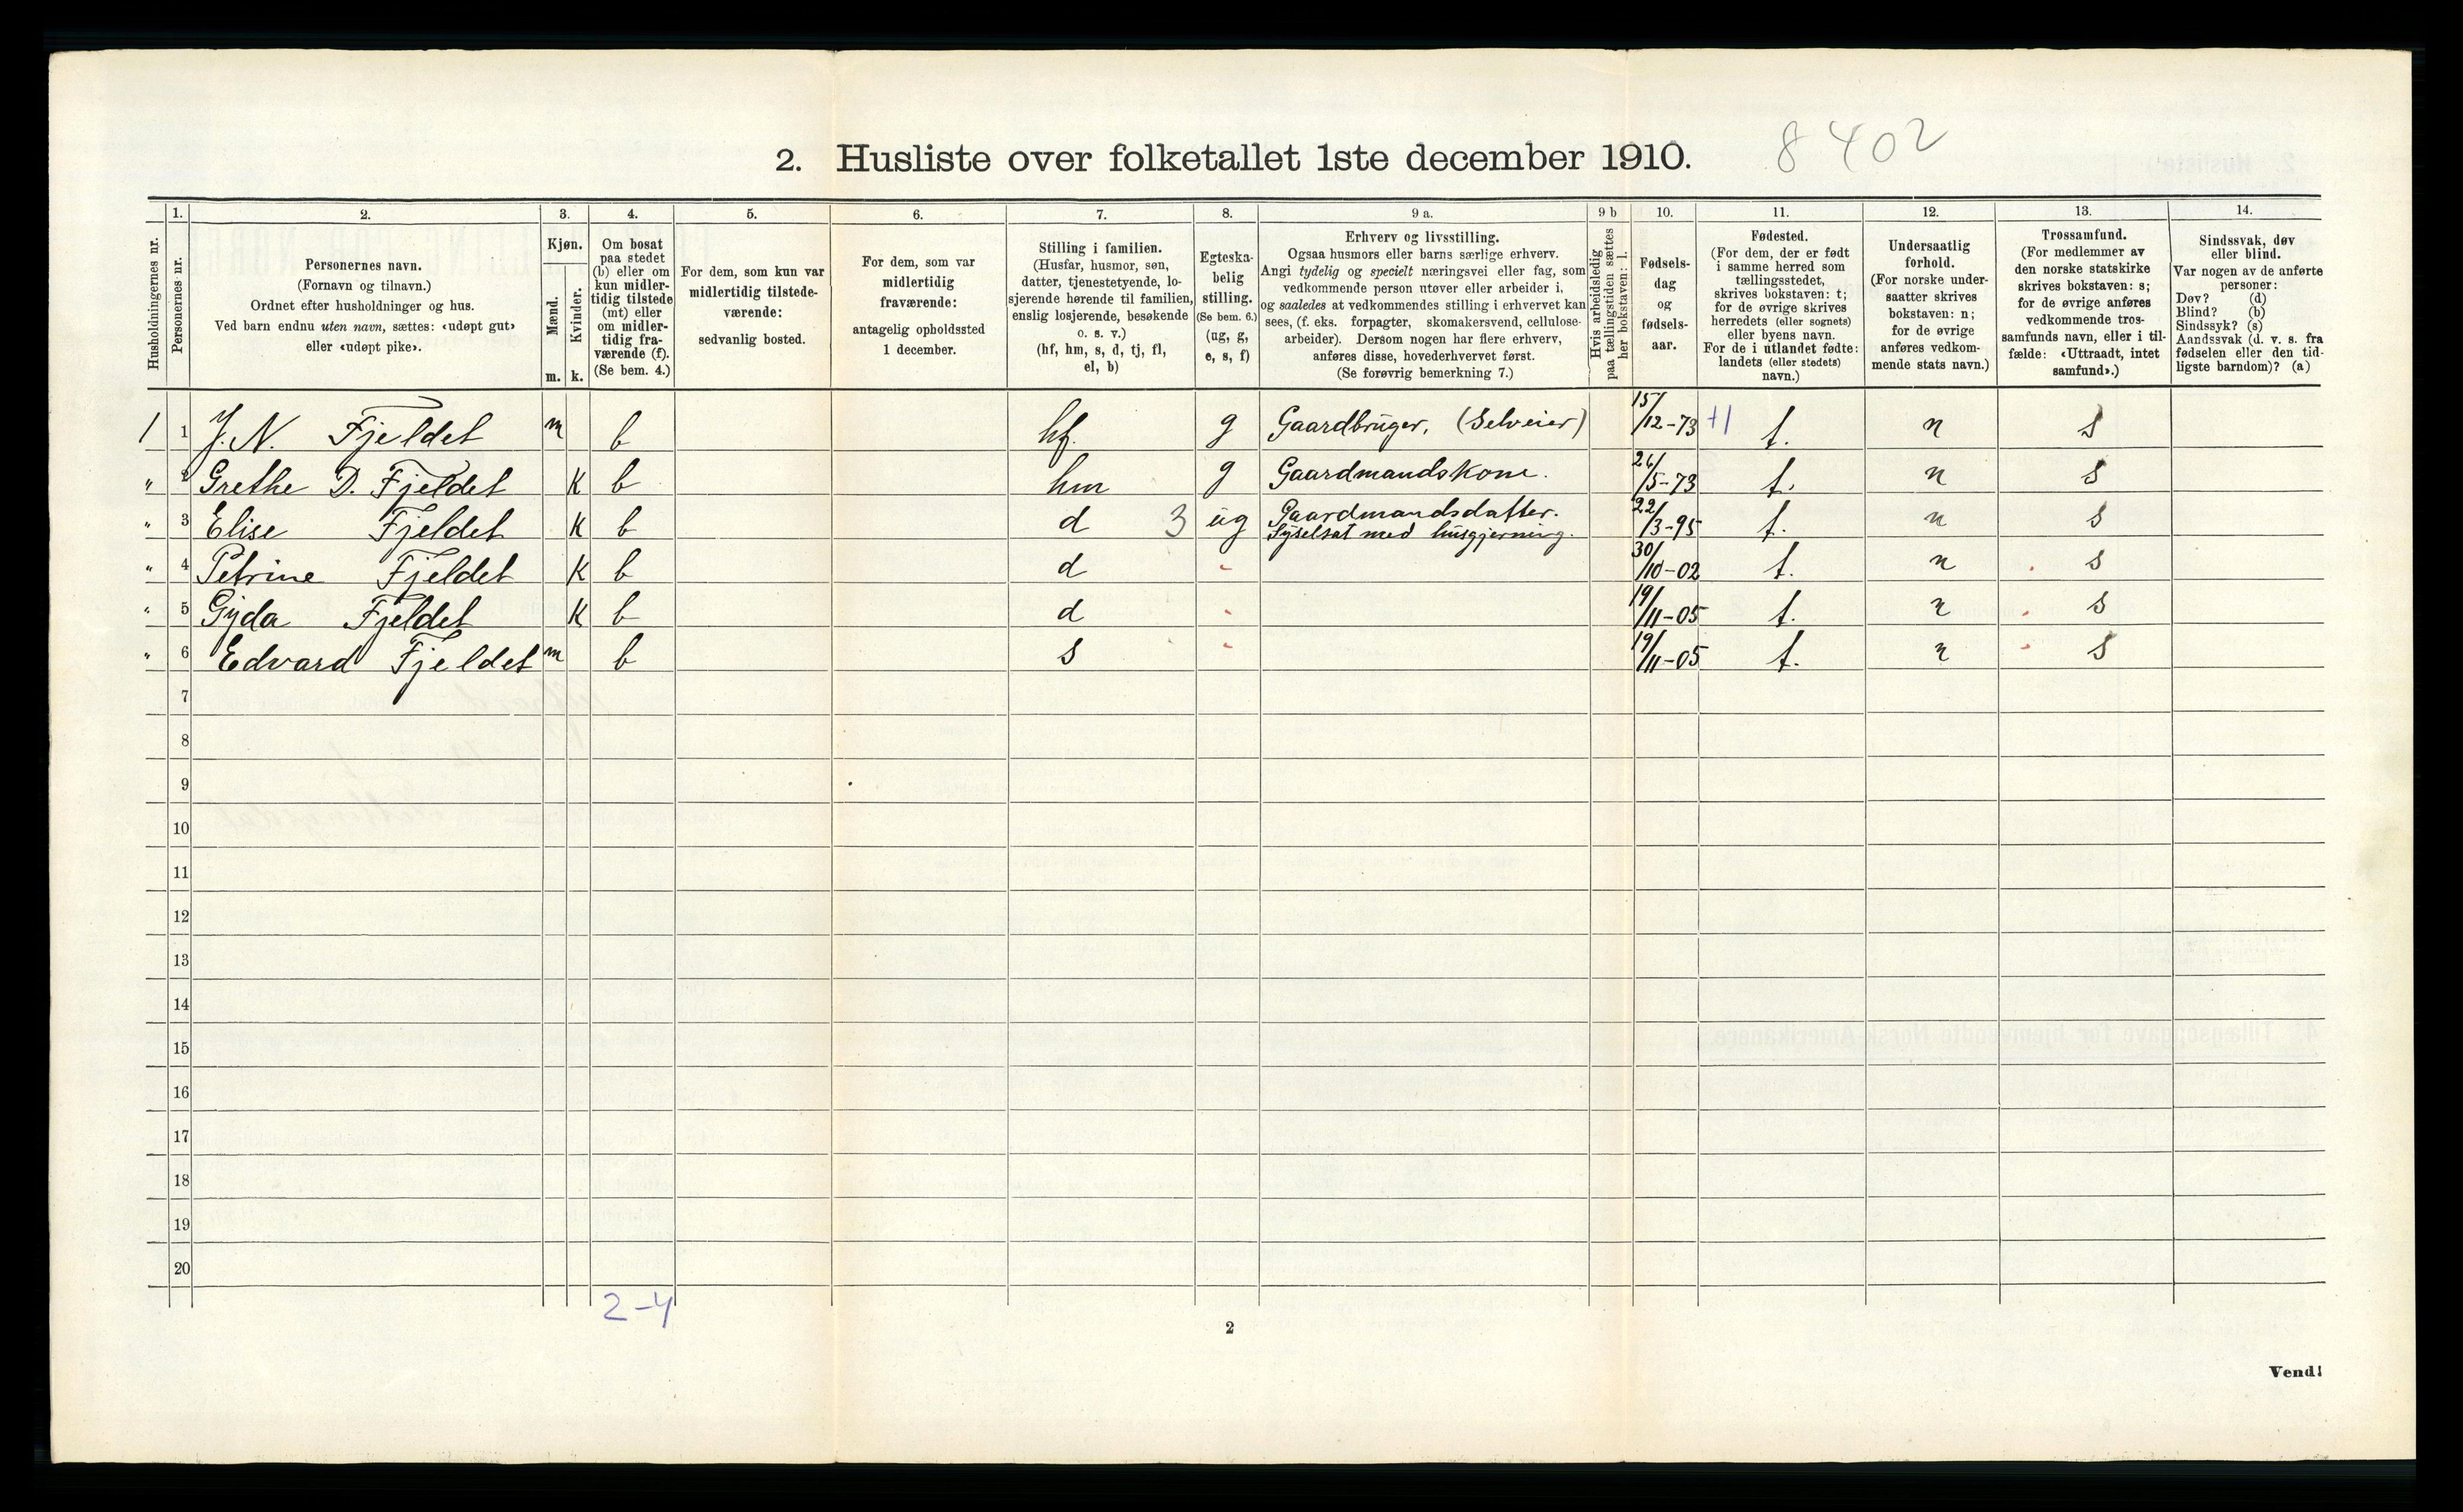 8402
2. Husliste over folketallet 1ste december 1910.
1. 2. 3. 4. 5. 6. 7. 8. 9 a. 9 b 10. 11. 12. 13. 14.
Husholdningernes nr.
Personernes nr.
Personernes navn.
(Fornavn og tilnavn.)
Ordnet efter husholdninger og hus.
Ved barn endnu uten navn, sættes: «udøpt gut»
eller «udøpt pike».
Kjøn.
Mænd.
Kvinder.
m. k.
Om bosat
paa stedet
(b) eller om
kun midler-
tidig tilstede
(mt) eller
om midler-
tidig fra-
værende (f).
(Se bem. 4.)
For dem, som kun var
midlertidig tilstede-
værende:
sedvanlig bosted.
For dem, som var
midlertidig
fraværende:
antagelig opholdssted
1 december.
Stilling i familien.
(Husfar, husmor, søn,
datter, tjenestetyende, lo-
sjerende hørende til familien,
enslig losjerende, besøkende
o. s. v.)
(hf, hm, s, d, tj, fl,
el, b)
Egteska-
belig
stilling.
(Se bem. 6.)
(ug, g,
e, s, f)
Erhverv og livsstilling.
Ogsaa husmors eller barns særlige erhverv.
Angi tydelig og specielt næringsvei eller fag, som
vedkommende person utøver eller arbeider i,
og saaledes at vedkommendes stilling i erhvervet kan
sees, (f. eks. forpagter, skomakersvend, cellulose-
arbeider). Dersom nogen har flere erhverv,
anføres disse, hovederhvervet først.
(Se forøvrig bemerkning 7.)
Hvis arbeidsledig
paa tællingstiden sættes
her bokstaven: l.
Fødsels-
dag
og
fødsels-
aar.
Fødested.
(For dem, der er født
i samme herred som
tællingsstedet,
skrives bokstaven: t;
for de øvrige skrives
herredets (eller sognets)
eller byens navn.
For de i utlandet fødte:
landets (eller stedets)
navn.)
Undersaatlig
forhold.
(For norske under-
saatter skrives
bokstaven: n;
for de øvrige
anføres vedkom-
mende stats navn.)
Trossamfund.
(For medlemmer av
den norske statskirke
skrives bokstaven: s;
for de øvrige anføres
vedkommende tros-
samfunds navn, eller i til-
fælde: «Uttraadt, intet
samfund».)
Sindssvak, døv
eller blind.
Var nogen av de anførte
personer:
Døv? (d)
Blind? (b)
Sindssyk? (s)
Aandssvak (d. v. s. fra
fødselen eller den tid-
ligste barndom)? (a)
1 1 J. N. Fjeldet m b hf. g Gaardbruger, (Selveier) 15/12-73 +1 t. n s
" 2 Grethe D. Fjeldet K b hm g Gaardmandskone. 26/5-73 t. n s
" 3 Elise Fjeldet K b d 3 ug Gaardmandsdatter. 22/3-95 t. n s
Syselsat med husgjerning.
" 4 Petrine Fjeldet K b d - 30/10-02 t. n s
" 5 Gyda Fjeldet K b d - 19/11-05 t. n s
" 6 Edvard Fjeldet m b s - 19/11-05 t. n s
7
8
9
10
11
12
13
14
15
16
17
18
19
20
2-4
2
Vend!